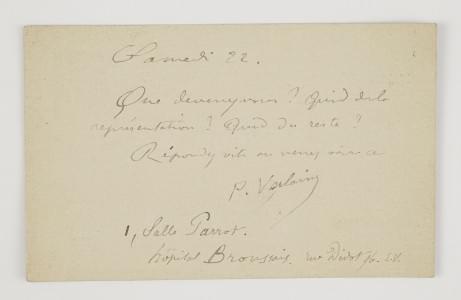 Samedi 22.
Que devenez vous ? Quid de la
représentation ? Quid du reste ?
Répondez vite ou venez
P. Verlaine
1, Salle Parrot.
hôpital Broussais. rue Didot